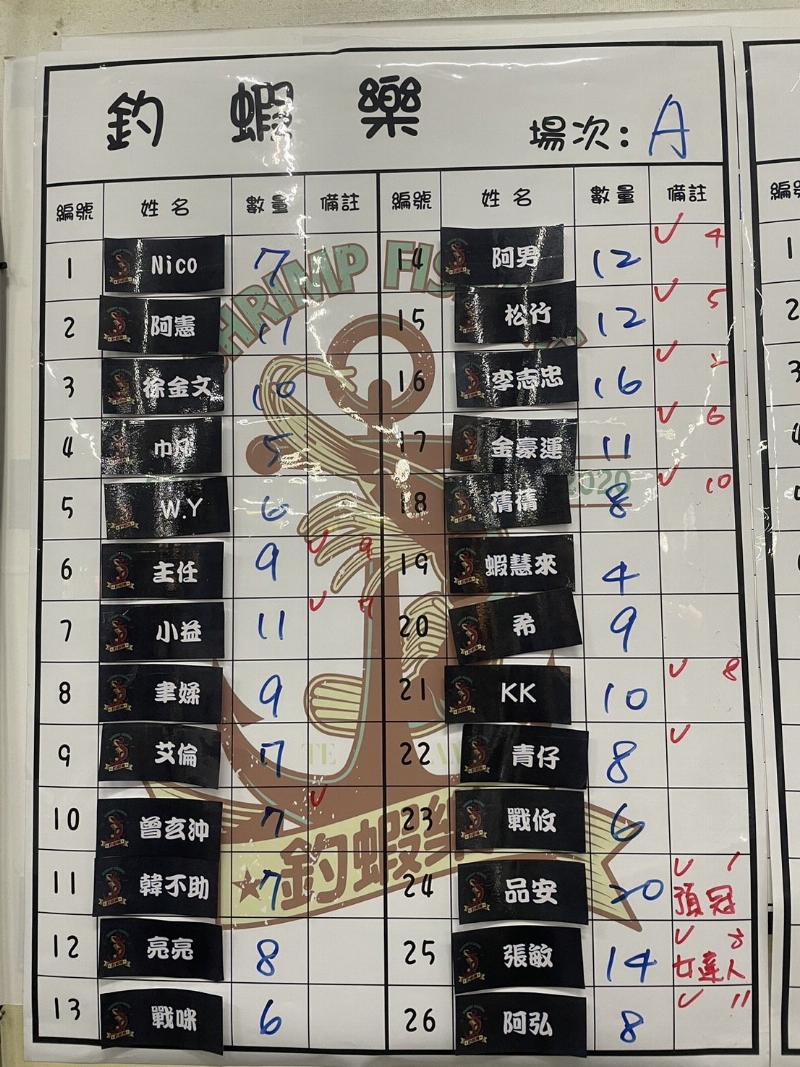 釣蝦樂
場次: A
編號 姓名 數量 備註 編號 姓名 數量 備註
1 Nico 7 14 阿男 12 ✓ 4
2 阿憲 11 15 松竹 12 ✓ 5
3 徐金文 10 16 李志忠 16 ✓ 2
4 5 17 金豪運 11 ✓ 6
5 W.Y 6 18 蒨蒨 8 ✓ 10
6 主任 9 ✓ 9 19 蝦慧來 4
7 小益 11 ✓ 20 希 9
8 聿嫀 9 21 KK 10 ✓ 8
9 艾倫 22 青仔 8 ✓
10 曾玄沖 7 ✓ 23 戰攸 6
11 韓不助 7 24 品安 20 ✓ 1 預冠
12 亮亮 8 25 張敏 14 ✓ 3 女達人
13 戰咪 6 26 阿弘 8 ✓ 11
SHRIMP FIS
2020
TE
★釣蝦樂